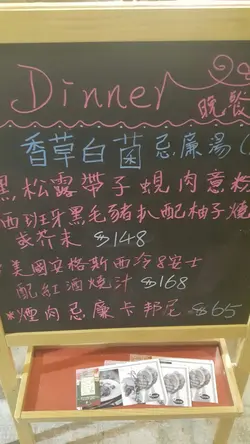 Dinner
晚餐
香草白菌忌廉湯(
黑松露帶子蜆肉意粉
西班牙黑毛豬扒配柚子燒
或芥末 $148
美國安格斯西冷8安士
配紅酒燒汁 $168
*煙肉忌廉卡邦尼 $65